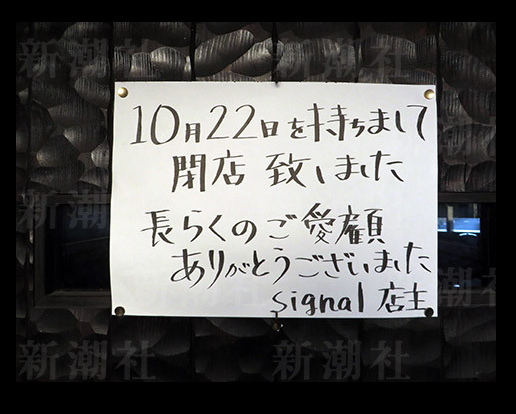 10月22日を持ちまして
閉店 致しました
長らくのご愛顧
ありがとうございました
signal 店主
新潮社 新潮社
新潮社 新潮社
新潮社 新潮社